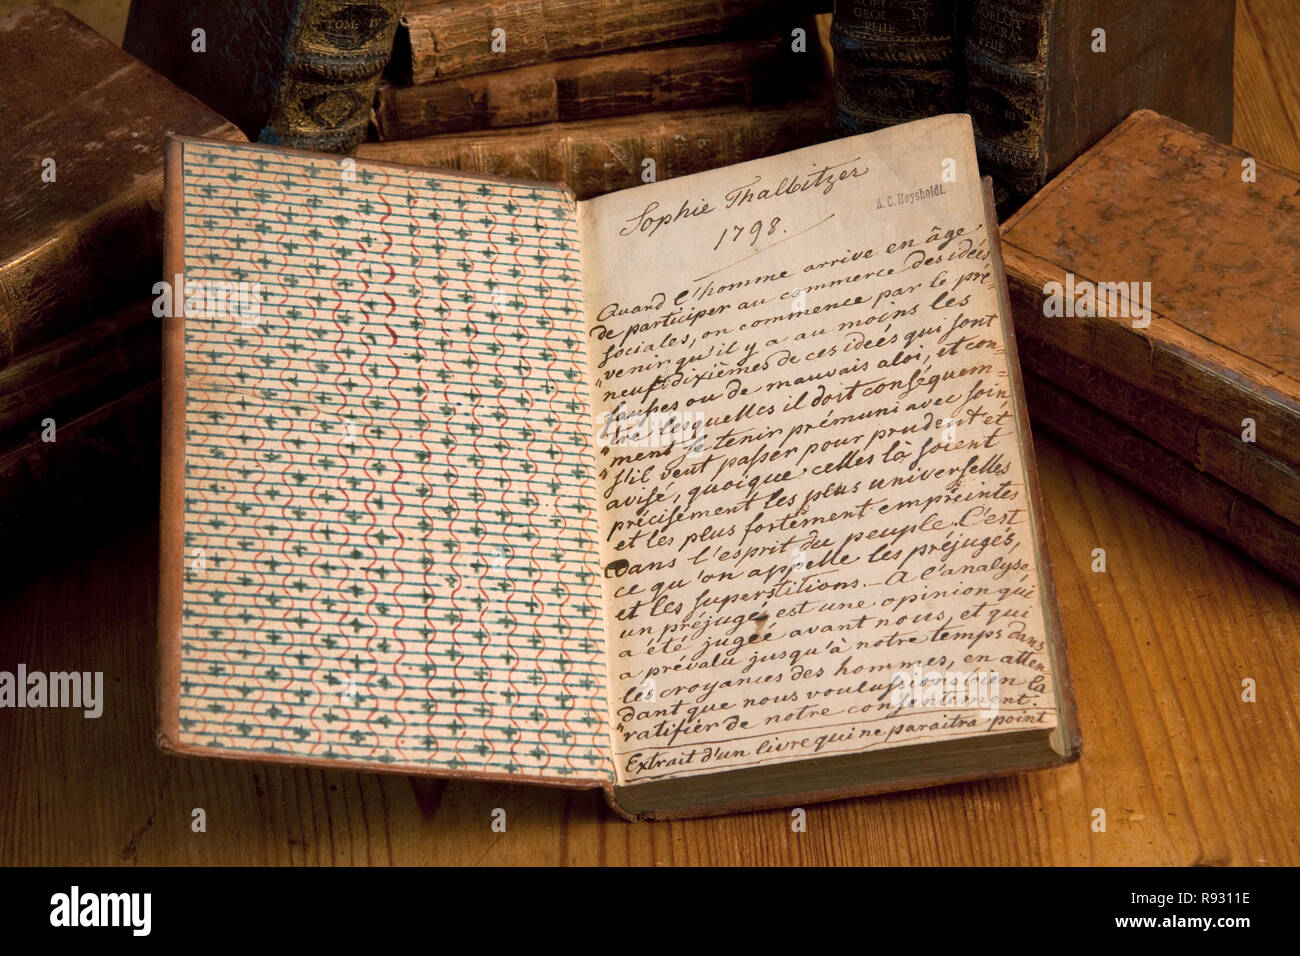 TOM: IV
TOM: II
III
Sophie Thalbitzer
1798.
A. C. Heysholdt.
Quand l'homme arrive en âge
de participer au commerce des idées
sociales, on commence par le pré-
"venir qu'il y a au moins les
neuf-dixièmes de ces idées qui sont
fausses ou de mauvais aloi, et con-
"tre lesquelles il doit conséquem=
"ment se tenir prémuni avec soin
s'il veut passer pour prudent et
avisé, quoique celles là soient
précisément les plus universelles
et les plus fortement empreintes
dans l'esprit du peuple. C'est
ce qu'on appelle les préjugés,
et les superstitions. - A l'analyse
un préjugé est une opinion qui
a été jugée avant nous, et qui
a prévalu jusqu'à notre temps dans
les croyances des hommes, en atten
dant que nous voulussions bien la
"ratifier de notre consentement.
Extrait d'un livre qui ne paraitra point
alamy
Image ID: R9311E
www.alamy.com